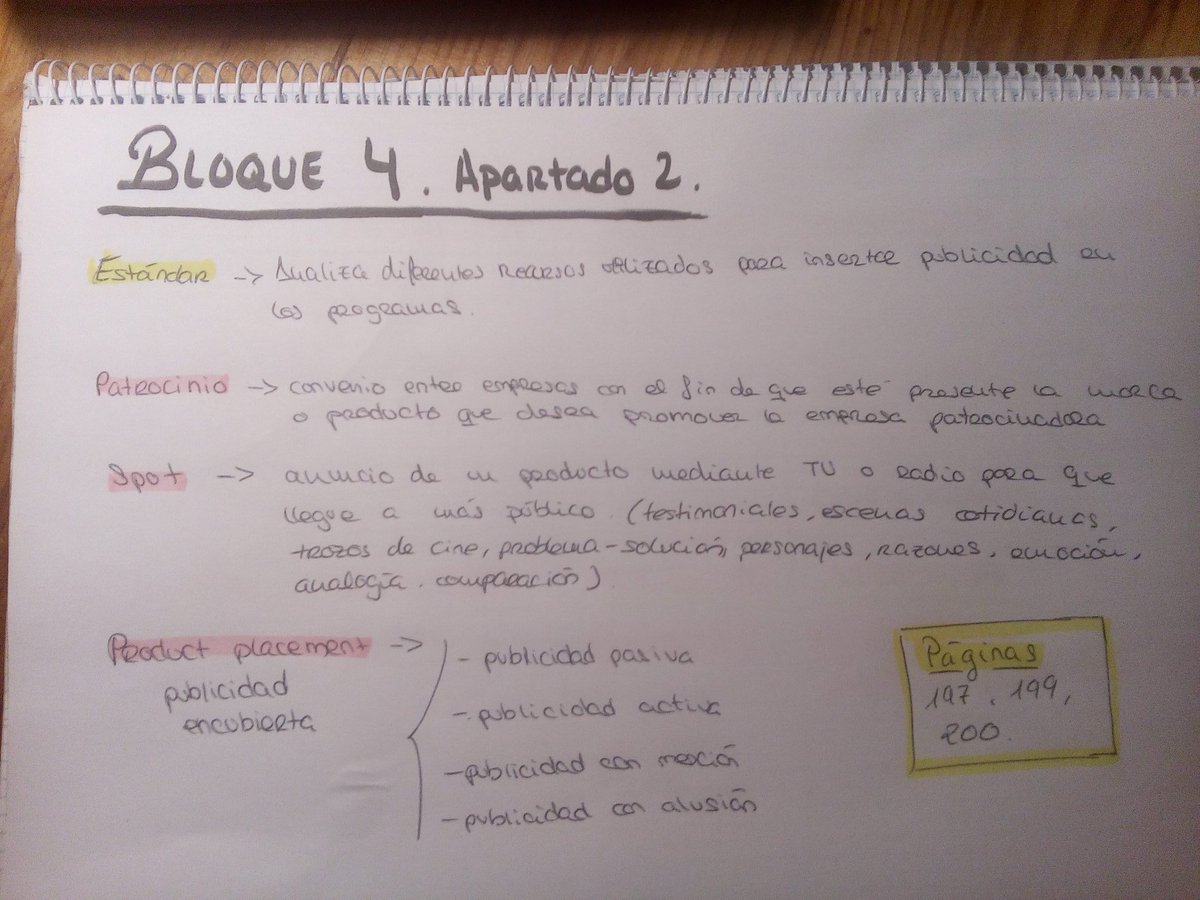 BLOQUE 4. Apartado 2.
Estándar -> Analiza diferentes recursos utilizados para insertar publicidad en
los programas.
Patrocinio -> convenio entre empresas con el fin de que esté presente la marca
o producto que desea promover la empresa patrocinadora
Spot -> anuncio de un producto mediante TV o radio para que
llegue a más público. (testimoniales, escenas cotidianas,
trozos de cine, problema-solución, personajes, razones, emoción,
analogía, comparación).
Product placement ->
publicidad
encubierta
- publicidad pasiva
- publicidad activa
- publicidad con mención
- publicidad con alusión
Páginas
197, 199,
200.